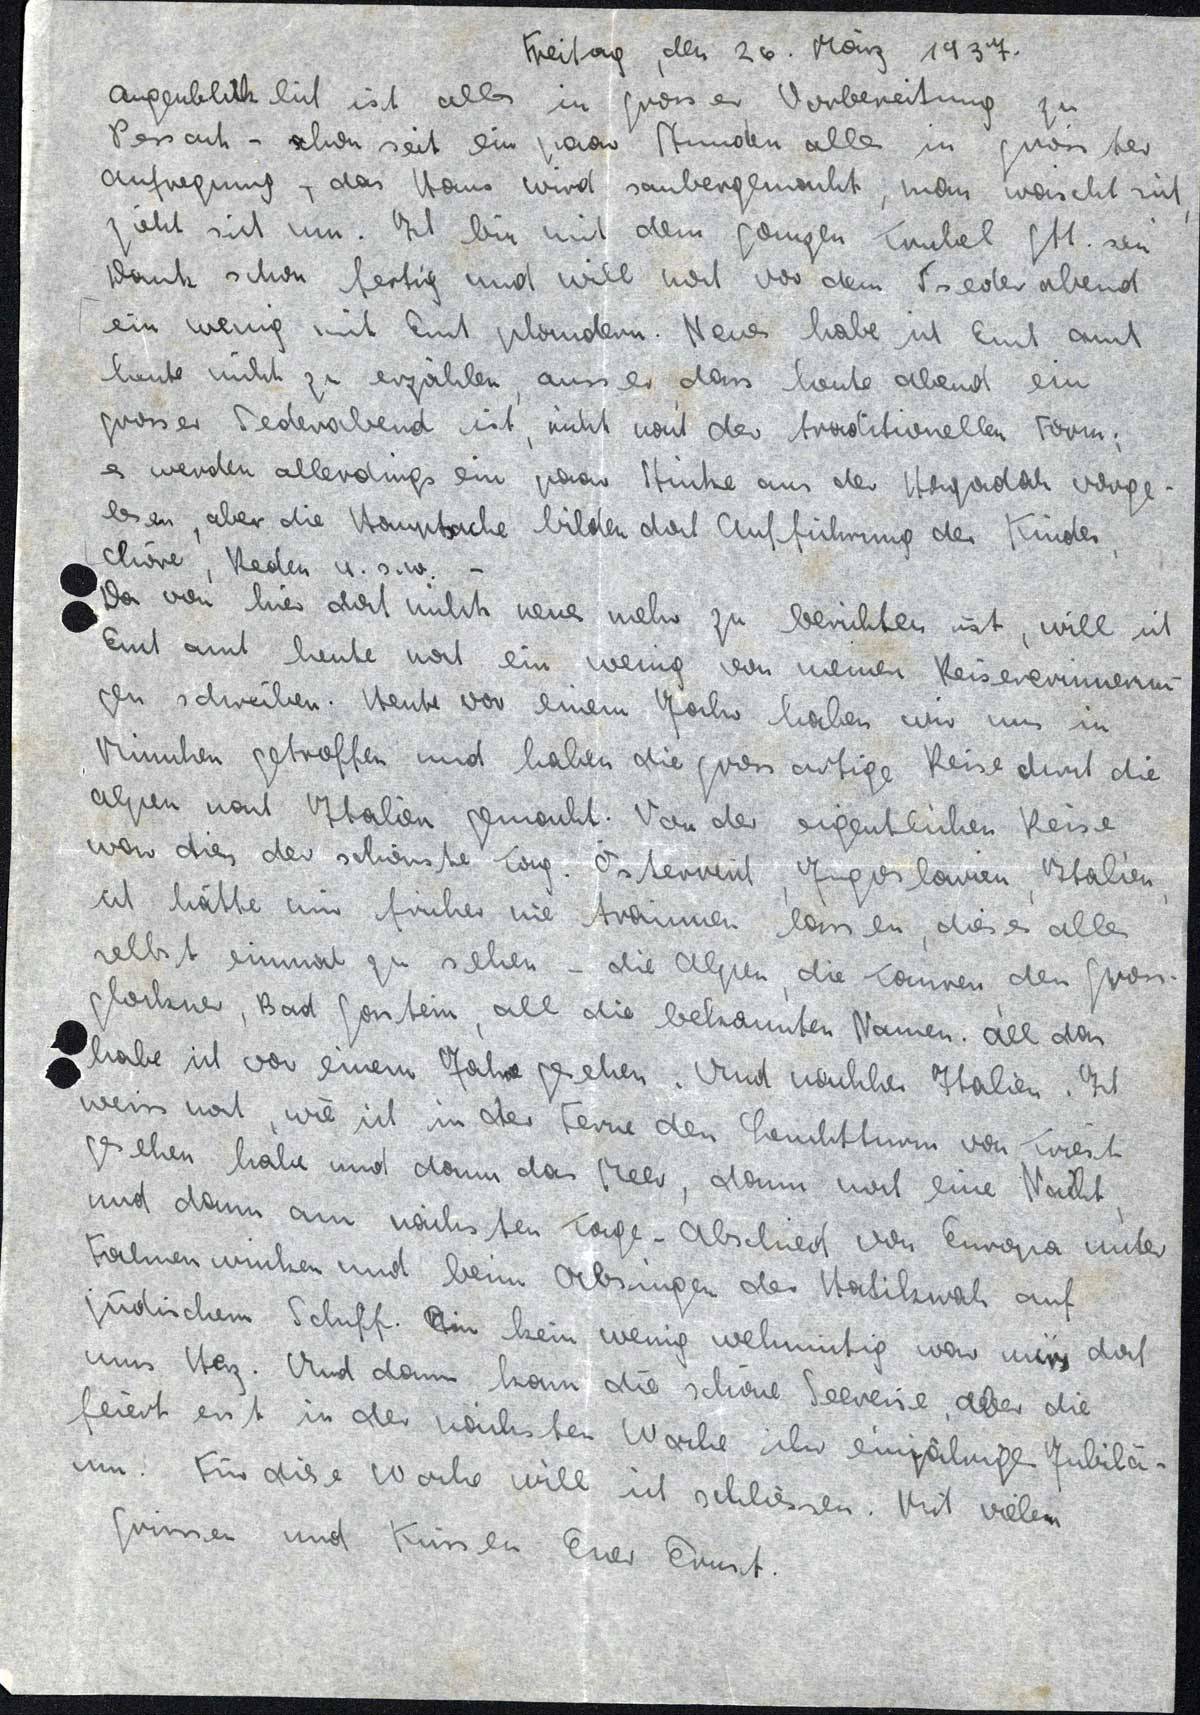 Freitag, den 26. März 1937.
Augenblicklich ist alles in grosser Vorbereitung zu
Pessach - schon seit ein paar Stunden alles in grösster
Aufregung -, das Haus wird saubergemacht, man wäscht sich,
zieht sich um. Ich bin mit dem ganzen Trubel Gtt. sei
Dank schon fertig und will noch vor dem Tsederabend
ein wenig mit Euch plaudern. Neues habe ich Euch auch
heute nicht zu erzählen, ausser, dass heute abend ein
grosser Sederabend ist, nicht nach der traditionellen Form;
es werden allerdings ein paar Stücke aus der Hagadah vorge-
lesen, aber die Hauptsache bilden doch Aufführung der Kinder,
Chöre, Reden u.s.w. -
Da von hier doch nichts neues mehr zu berichten ist, will ich
Euch auch heute noch ein wenig von meinen Reiseerinnerun-
gen schreiben. Heute vor einem Jahr haben wir uns in
München getroffen und haben die grossartige Reise durch die
Alpen nach Italien gemacht. Von der eigentlichen Reise
war dies der schönste Tag. Österreich, Jugoslavien, Italien,
ich hätte mir früher nie träumen lassen, dieses alles
selbst einmal zu sehen - die Alpen, die Tauren, den Gross-
glockner, Bad Gastein, all die bekannten Namen. All das
habe ich vor einem Jahre gesehen. Und nachher Italien. Ich
weiss noch, wie ich in der Ferne den Leuchtturm von Triest
gesehen habe und dann das Meer, dann noch eine Nacht,
und dann am nächsten Tage - Abschied von Europa unter
Fahnenwinken und beim Absingen der Hatikwah auf
jüdischem Schiff. kein wenig wehmütig war uns doch
ums Herz. Und dann kam die schöne Seereise, aber die
feiert erst in der nächsten Woche ihr einjährige Jubilä-
um. Für diese Woche will ich schliessen. Mit vielen
Grüssen und Küssen Euer Ernst.